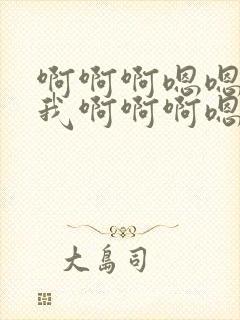 啊啊啊嗯嗯
我啊啊啊嗯
大岛司